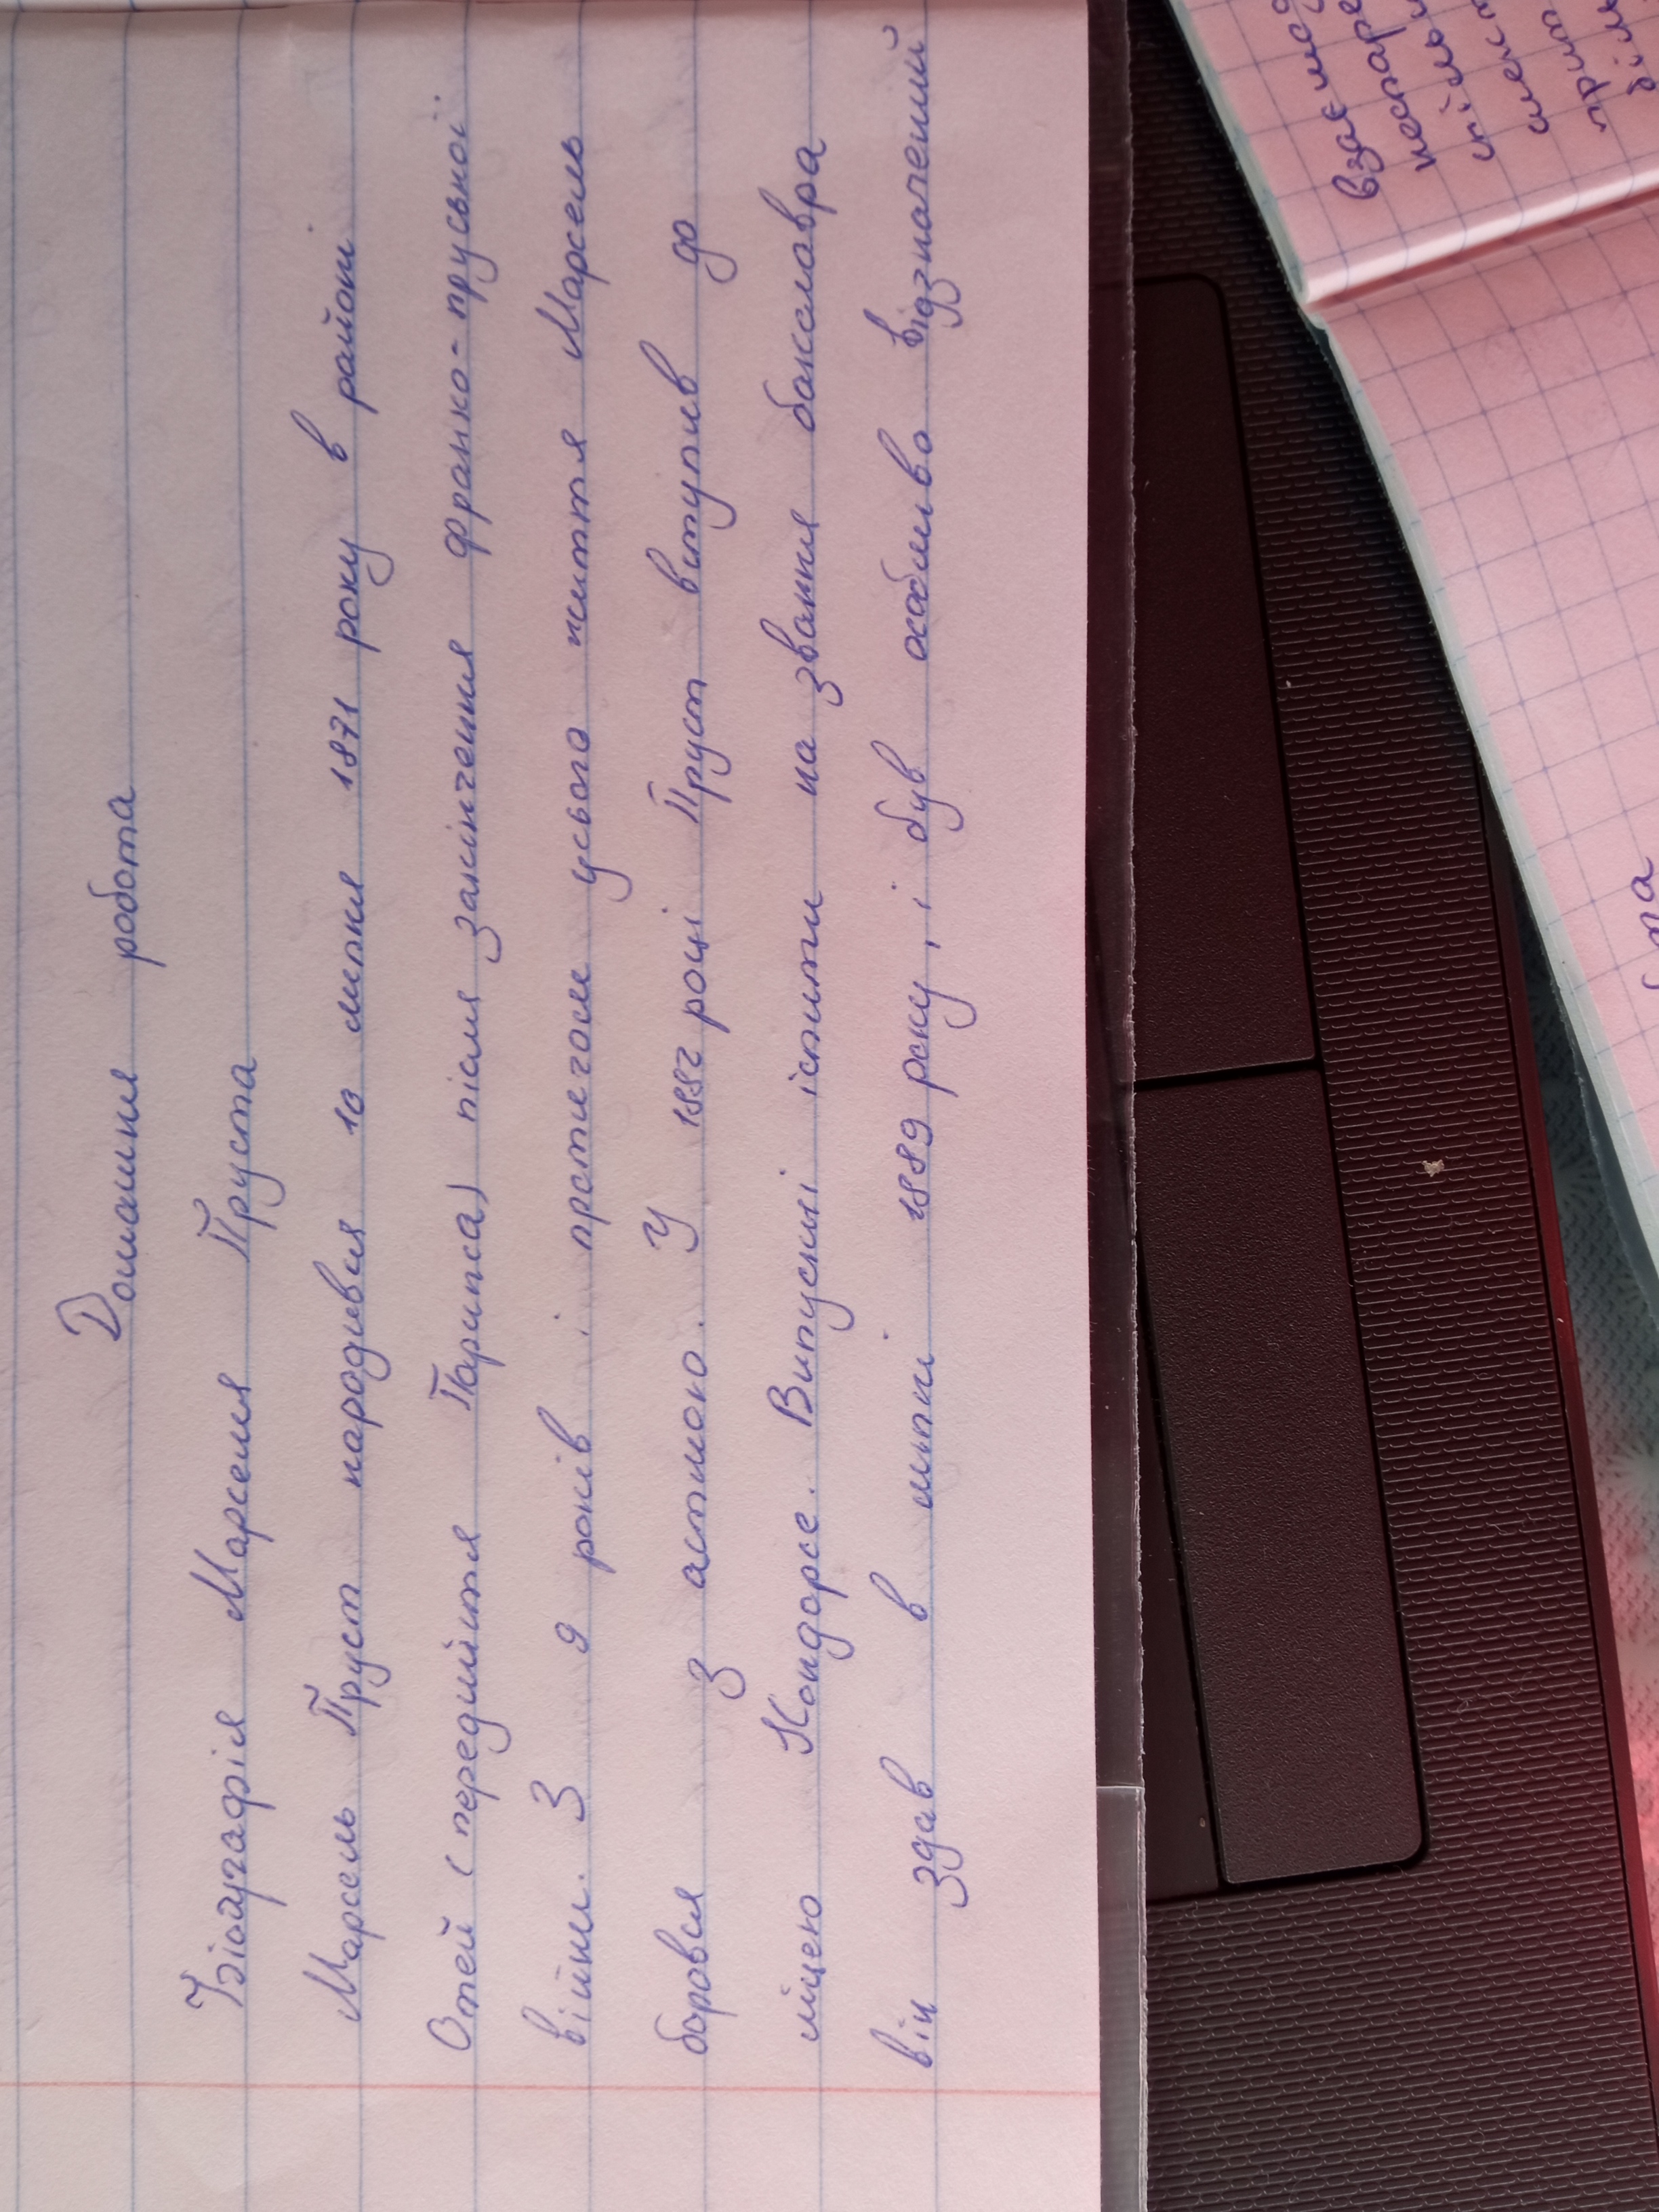 Домашня робота
Біографія Марселя Пруста
Марсель Пруст народився 10 липня 1871 року в районі
Отей (передмістя Парижа) після закінчення франко-прусьної
війни. З 9 років і протягом усього життя Марсель
боровся з астмою. У 1882 році Пруст вступив до
ліцею Кондорсе. Випускні іспити на звання бакалавра
він здав в липні 1889 року, і був особливо відзначений